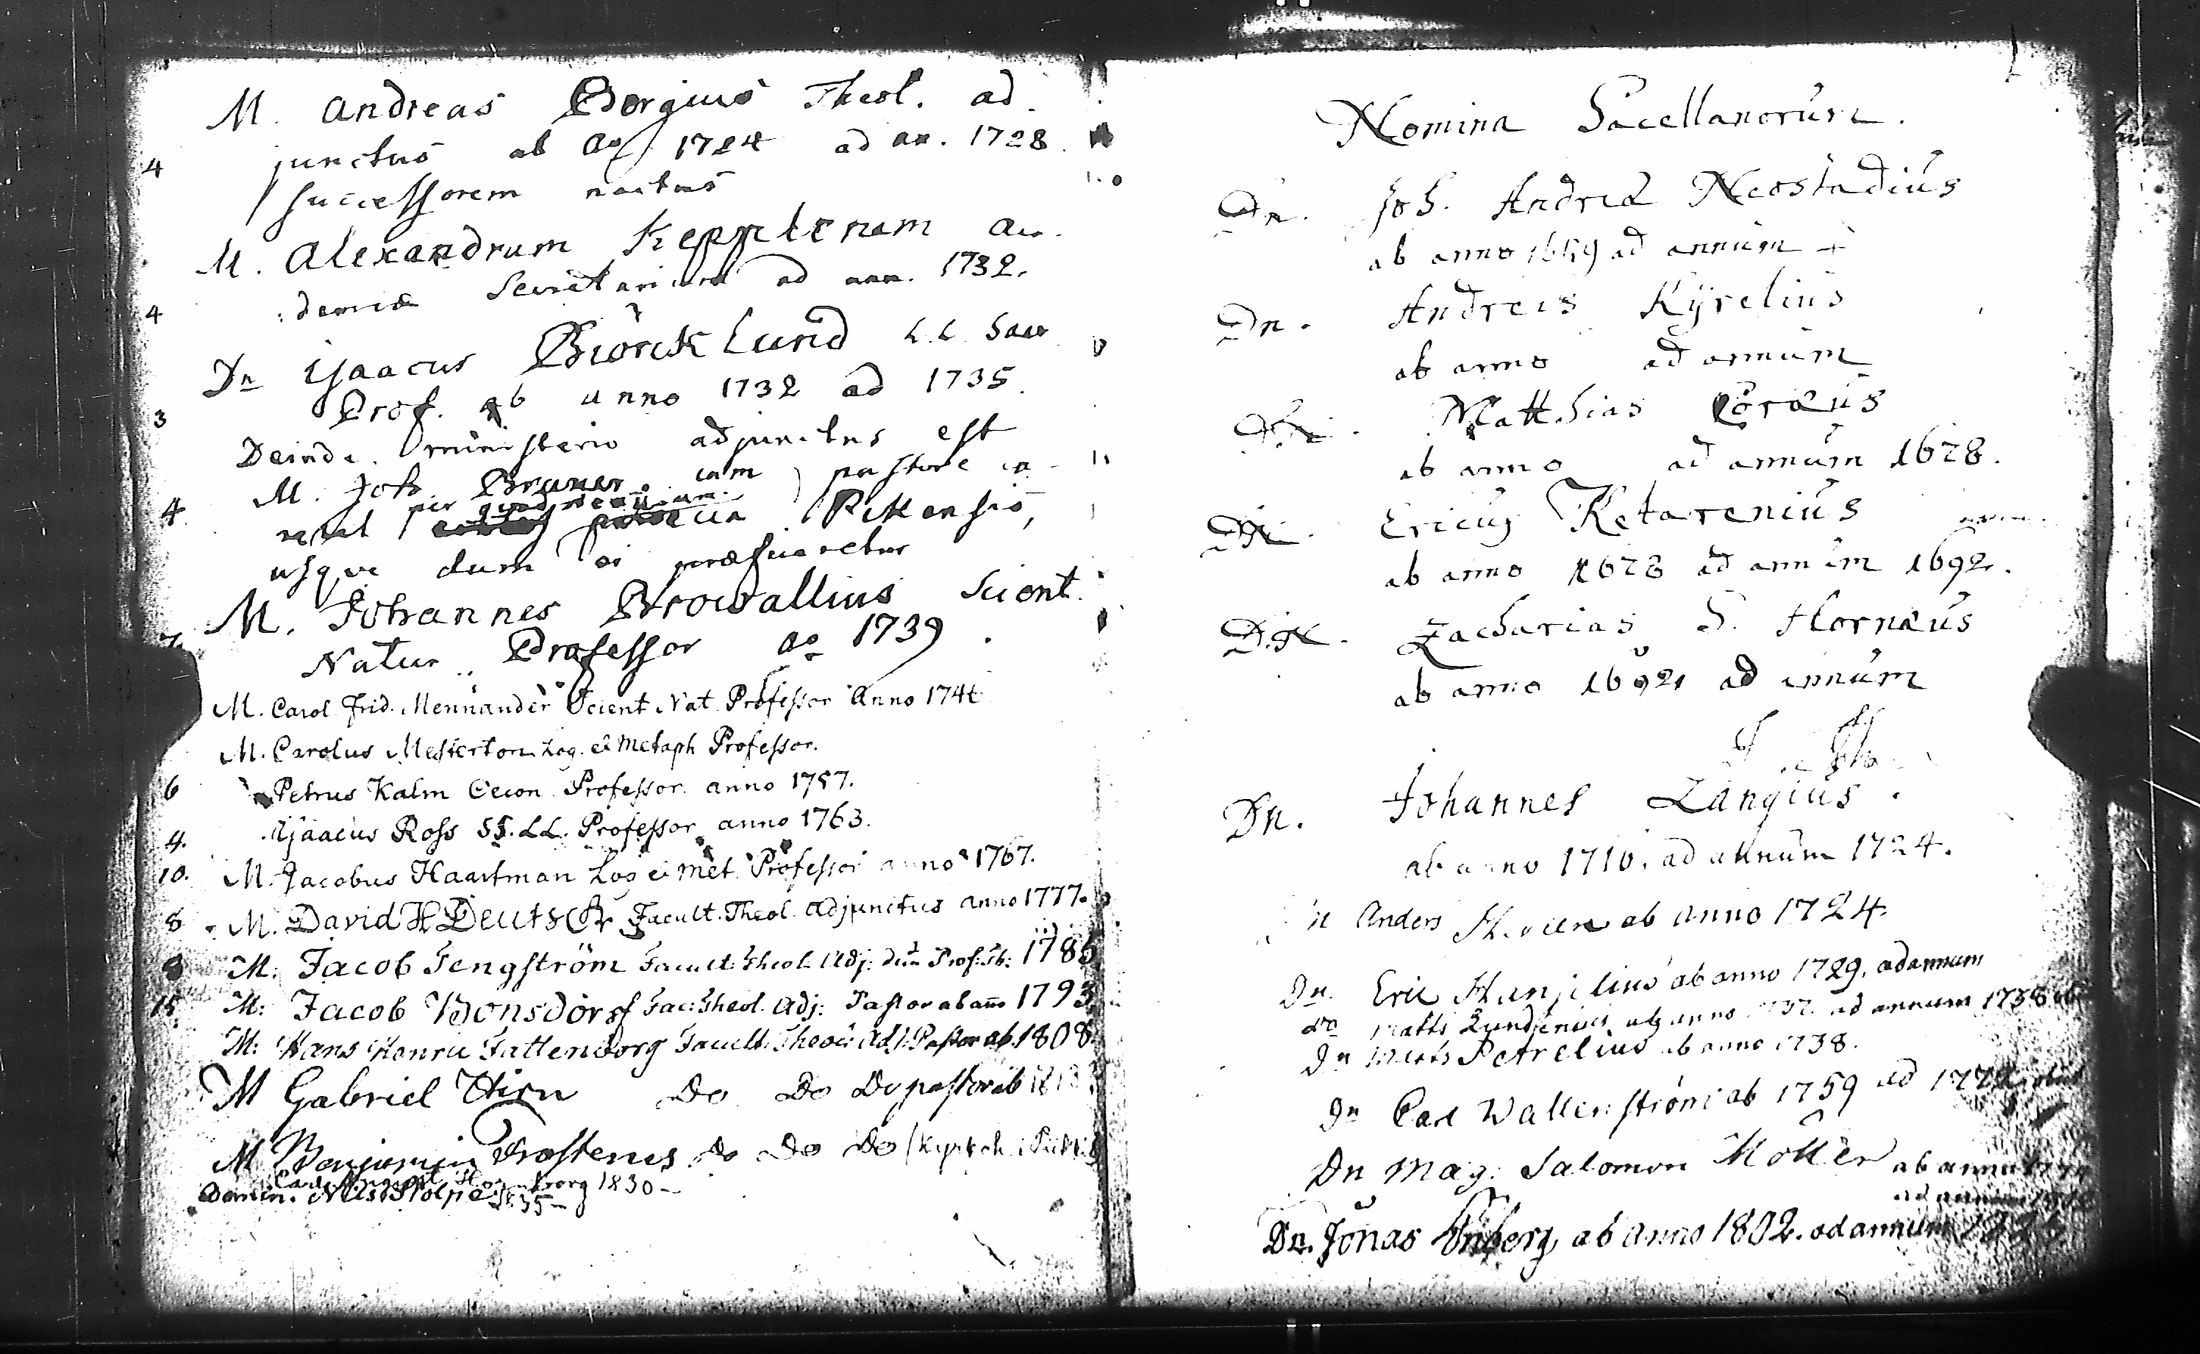 M. Andreas Borgius Theol. ad
4 junctus ab ao 1724 ad an. 1728
successorem nactus
M. Alexandrum Kepplerum Aca
4 demiæ Secretarium ad ann. 1732.
Dn Isaacus Biörcklund L.L. Sacr
3 Prof. ab anno 1732 ad 1735.
Deinde ministerio adjunctus est
M. Joh. Bruner. cum pastore ca
per
4 Pikkensis,
usque dum ei præficeretur
M. Johannes Browallius Scient.
7. Natur. Professor ao 1739
M. Carol. Frid. Mennander Scient Nat. Professor Anno 174
M. Carolus Mesterton Log. et Metaph Professor.
6 Petrus Kalm Oecon. Professor. anno 1757.
4. Isaacus Ross SS. LL. Professor anno 1763.
10. M. Jacobus Haartman Log et Met. Professor anno 1767.
8 M. David H Deutsch Facult. Theol. Adjunctus anno 1777.
8 M. Jacob Tengström Facult. Theol. Adj. Prof. Th: 1785
15. M: Jacob Bonsdorff Fac: Theol. Adj: Pastor ab ano 1793
M: Hans Henric Fattenborg Facult. Theol: Adj: Pastor ab. 1808.
M Gabriel Hirn Do Do Do pastor ab
M Benjamin Frosterus Do Do Do
Carl 1830-
Domin. Nils Stolpe 1835-
Nomina Sacellanorum.
Dn. Joh. Andreæ Neostadius
ab anno 1659 ad annum
Dn. Andreas Kyrelius
ab anno ad annum
Dn. Matthias Coræus
ab anno ad annum 1678.
Dn. Ericus Ketarenius
ab anno 1678 ad annum 1692.
Dn. Zacharias S. Hornæus
ab anno 1692 ad annum
Dn. Johannes Langius.
ab anno 1710. ad annum 1724.
Dn Anders ab anno 1724.
Dn. Eric ab anno 1729. ad annum
Dn Matts Lundenius ab anno 1737. ad annum 1738
Dn Matts Petrelius ab anno 1738.
Dn Carl Wallenström ab 1759 ad
Dn Mag: Salomon Moller ab anno
ad annum
Dn. Jonas ab anno 1802. ad annum